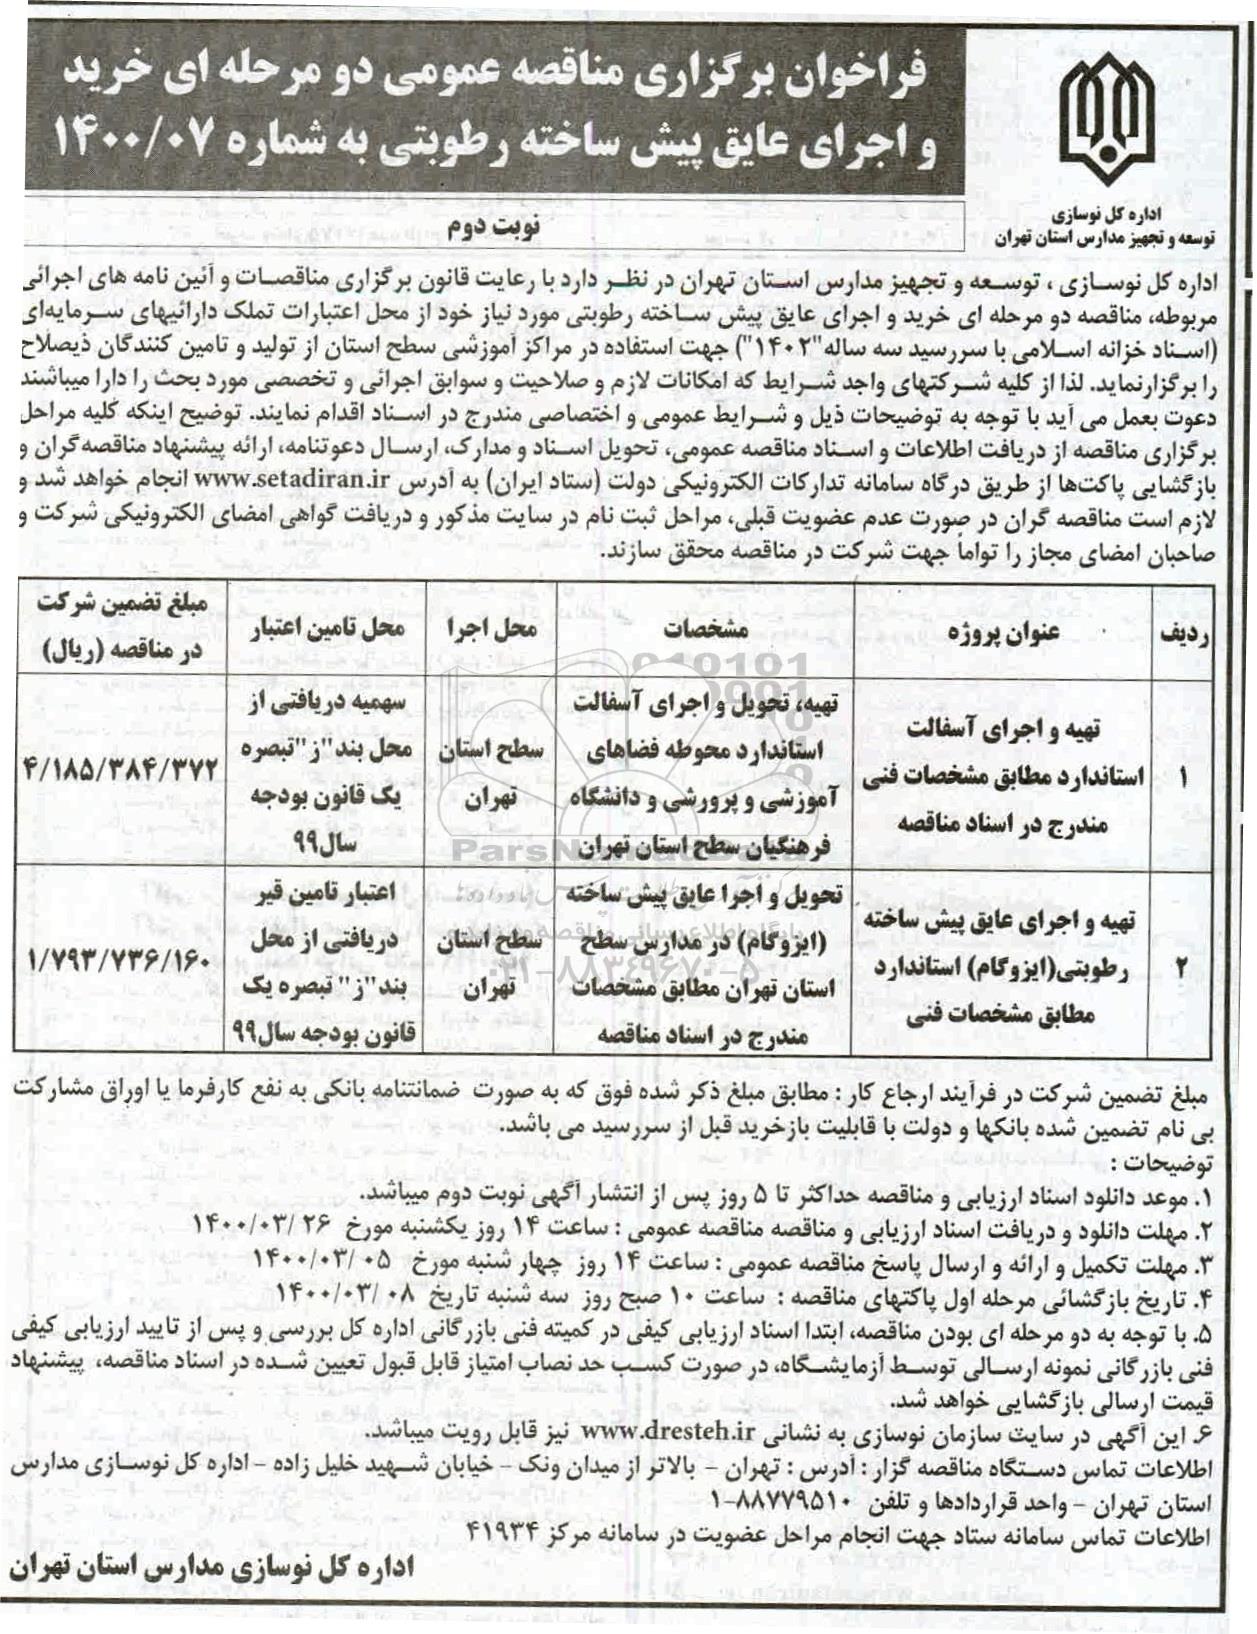 فراخوان برگزاری مناقصه عمومی دو مرحله ای خرید
و اجرای عایق پیش ساخته رطوبتی به شماره ۱۴۰۰/۰۷
اداره کل نوسازی
توسعه و تجهیز مدارس استان تهران
نوبت دوم
اداره کل نوسازی ، توسعه و تجهیز مدارس استان تهران در نظر دارد با رعایت قانون برگزاری مناقصات و آئین نامه های اجرائی
مربوطه، مناقصه دو مرحله ای خرید و اجرای عایق پیش ساخته رطوبتی مورد نیاز خود از محل اعتبارات تملک دارائیهای سرمایه‌ای
(اسناد خزانه اسلامی با سررسید سه ساله"۱۴۰۲") جهت استفاده در مراکز آموزشی سطح استان از تولید و تامین کنندگان ذیصلاح
را برگزارنماید. لذا از کلیه شرکتهای واجد شرایط که امکانات لازم و صلاحیت و سوابق اجرائی و تخصصی مورد بحث را دارا میباشند
دعوت بعمل می آید با توجه به توضیحات ذیل و شرایط عمومی و اختصاصی مندرج در اسناد اقدام نمایند. توضیح اینکه کلیه مراحل
برگزاری مناقصه از دریافت اطلاعات و اسناد مناقصه عمومی، تحویل اسناد و مدارک، ارسال دعوتنامه، ارائه پیشنهاد مناقصه‌گران و
بازگشایی پاکت‌ها از طریق درگاه سامانه تدارکات الکترونیکی دولت (ستاد ایران) به آدرس www.setadiran.ir انجام خواهد شد و
لازم است مناقصه گران در صورت عدم عضویت قبلی، مراحل ثبت نام در سایت مذکور و دریافت گواهی امضای الکترونیکی شرکت و
صاحبان امضای مجاز را تواماً جهت شرکت در مناقصه محقق سازند.
ردیف عنوان پروژه مشخصات محل اجرا محل تامین اعتبار مبلغ تضمین شرکت در مناقصه (ریال)
۱
تهیه و اجرای آسفالت
استاندارد مطابق مشخصات فنی
مندرج در اسناد مناقصه
تهیه، تحویل و اجرای آسفالت
استاندارد محوطه فضاهای
آموزشی و پرورشی و دانشگاه
فرهنگیان سطح استان تهران
سطح استان
تهران
سهمیه دریافتی از
محل بند"ز"تبصره
یک قانون بودجه
سال۹۹
۴/۱۸۵/۳۸۴/۳۷۲
۲
تهیه و اجرای عایق پیش ساخته
رطوبتی(ایزوگام) استاندارد
مطابق مشخصات فنی
تحویل و اجرا عایق پیش ساخته
(ایزوگام) در مدارس سطح
استان تهران مطابق مشخصات
مندرج در اسناد مناقصه
سطح استان
تهران
اعتبار تامین قیر
دریافتی از محل
بند"ز" تبصره یک
قانون بودجه سال۹۹
۱/۷۹۳/۷۳۶/۱۶۰
پایگاه اطلاع رسانی مناقصه و مزایده
۰۲۱-۸۸۳۴۹۶۷۰-۵
مبلغ تضمین شرکت در فرآیند ارجاع کار : مطابق مبلغ ذکر شده فوق که به صورت ضمانتنامه بانکی به نفع کارفرما یا اوراق مشارکت
بی نام تضمین شده بانکها و دولت با قابلیت بازخرید قبل از سررسید می باشد.
توضیحات :
۱. موعد دانلود اسناد ارزیابی و مناقصه حداکثر تا ۵ روز پس از انتشار آگهی نوبت دوم میباشد.
۲. مهلت دانلود و دریافت اسناد ارزیابی و مناقصه مناقصه عمومی : ساعت ۱۴ روز یکشنبه مورخ ۲۶ /۱۴۰۰/۰۳
۳. مهلت تکمیل و ارائه و ارسال پاسخ مناقصه عمومی : ساعت ۱۴ روز چهار شنبه مورخ ۰۵ /۱۴۰۰/۰۳
۴. تاریخ بازگشائی مرحله اول پاکتهای مناقصه : ساعت ۱۰ صبح روز سه شنبه تاریخ ۰۸ /۱۴۰۰/۰۳
۵. با توجه به دو مرحله ای بودن مناقصه، ابتدا اسناد ارزیابی کیفی در کمیته فنی بازرگانی اداره کل بررسی و پس از تایید ارزیابی کیفی
فنی بازرگانی نمونه ارسالی توسط آزمایشگاه، در صورت کسب حد نصاب امتیاز قابل قبول تعیین شده در اسناد مناقصه، پیشنهاد
قیمت ارسالی بازگشایی خواهد شد.
۶. این آگهی در سایت سازمان نوسازی به نشانی www.dresteh.ir نیز قابل رویت میباشد.
اطلاعات تماس دستگاه مناقصه گزار : آدرس : تهران – بالاتر از میدان ونک – خیابان شهید خلیل زاده – اداره کل نوسازی مدارس
استان تهران – واحد قراردادها و تلفن ۸۸۷۷۹۵۱۰–۱
اطلاعات تماس سامانه ستاد جهت انجام مراحل عضویت در سامانه مرکز ۴۱۹۳۴
اداره کل نوسازی مدارس استان تهران